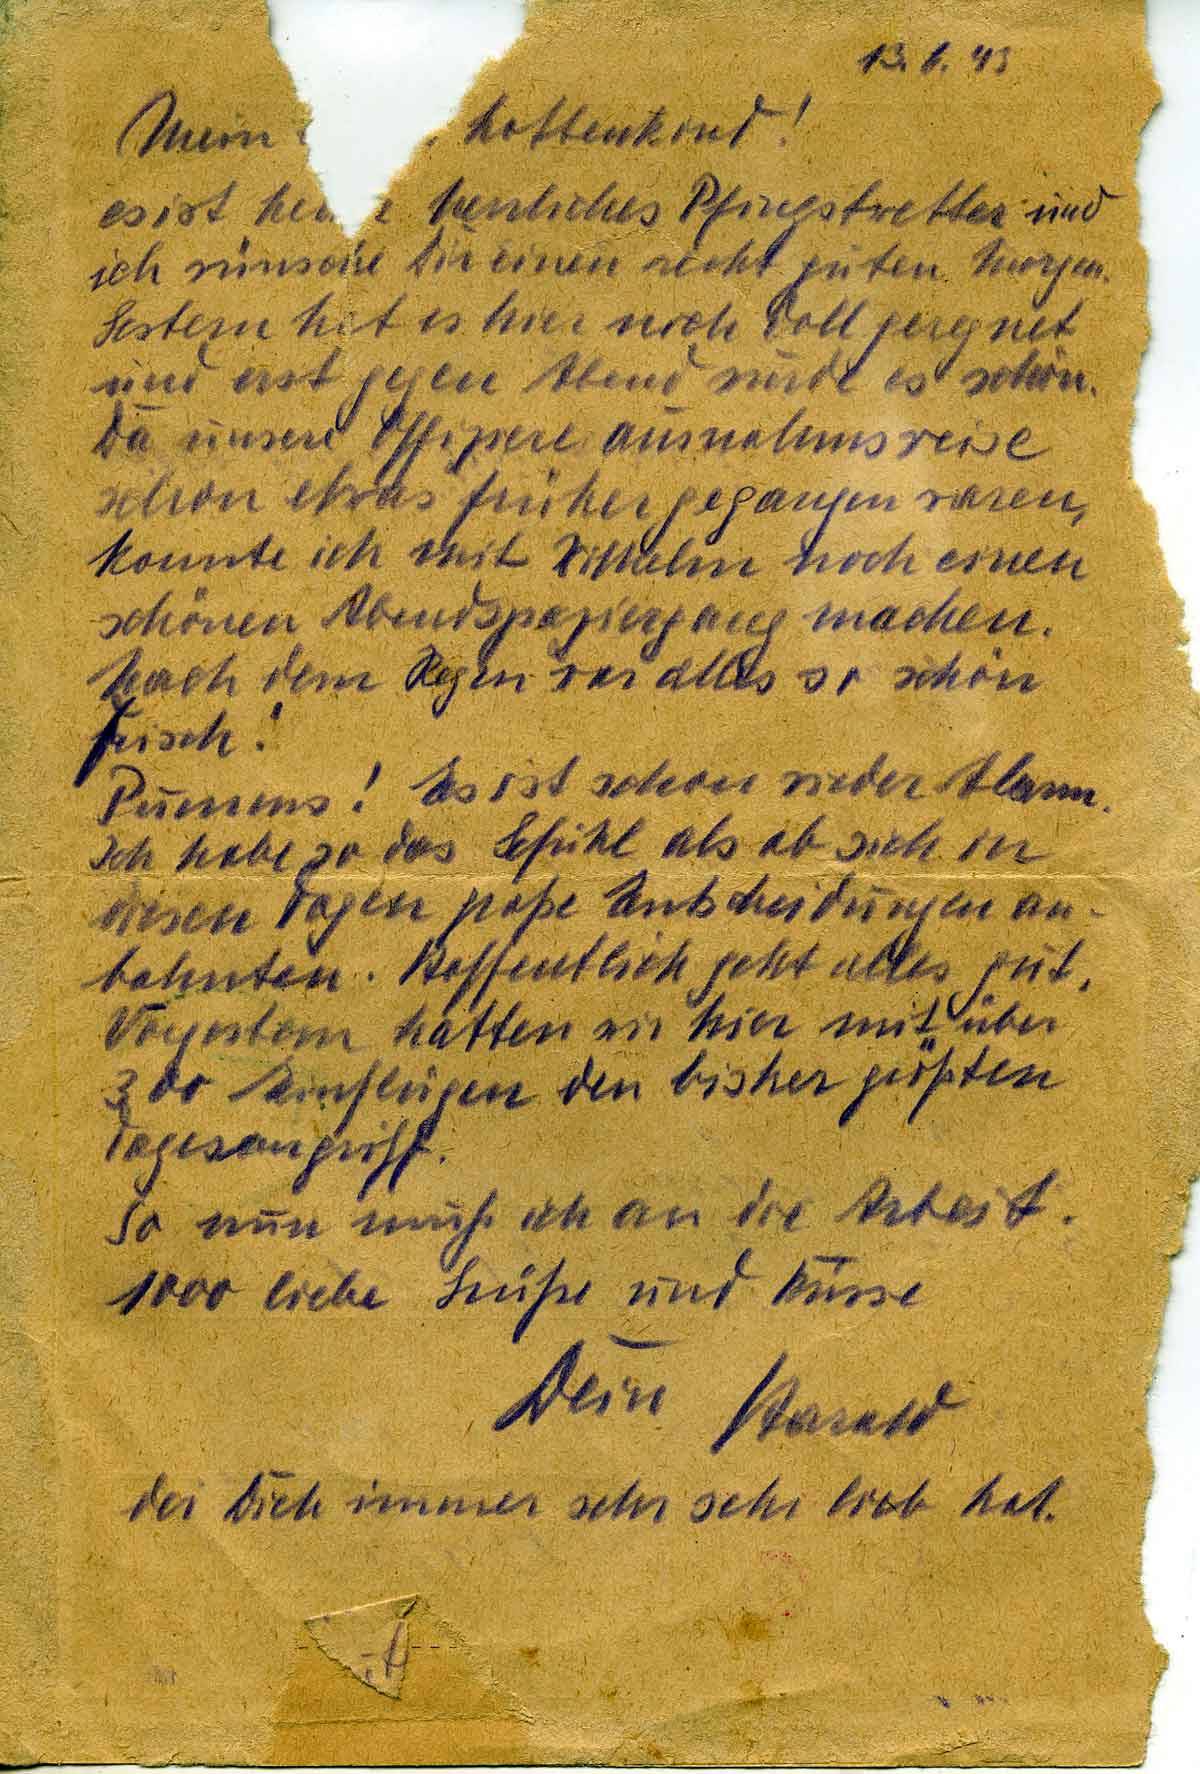 13.6.43
Mein , Lottenkind!
es ist heute herrliches Pfingstwetter und
ich wünsche Dir einen recht guten Morgen.
Gestern hat es hier noch doll geregnet
und erst gegen Abend wurde es schön.
Da unsere Offiziere ausnahmsweise
schon etwas früher gegangen waren,
konnte ich mit Wilhelm noch einen
schönen Abendspaziergang machen.
Nach dem Regen war alles so schön
frisch!
! Es ist schon wieder Alarm.
Ich habe so das Gefühl als ob sich in
diesen Tagen große Entscheidungen an-
bahnten. Hoffentlich geht alles gut.
Vorgestern hatten wir hier mit über
300 Einflügen den bisher größten
Tagesangriff.
So nun muß ich an die Arbeit.
1000 liebe Grüße und Küsse
Dein Harald
der Dich immer sehr sehr lieb hat.